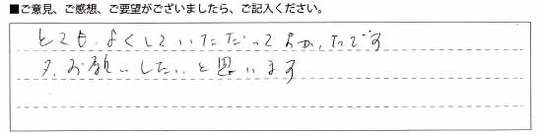 ■ご意見、ご感想、ご要望がございましたら、ご記入ください。
とても、よくしていただってよかったです
又、お願いしたいと思います